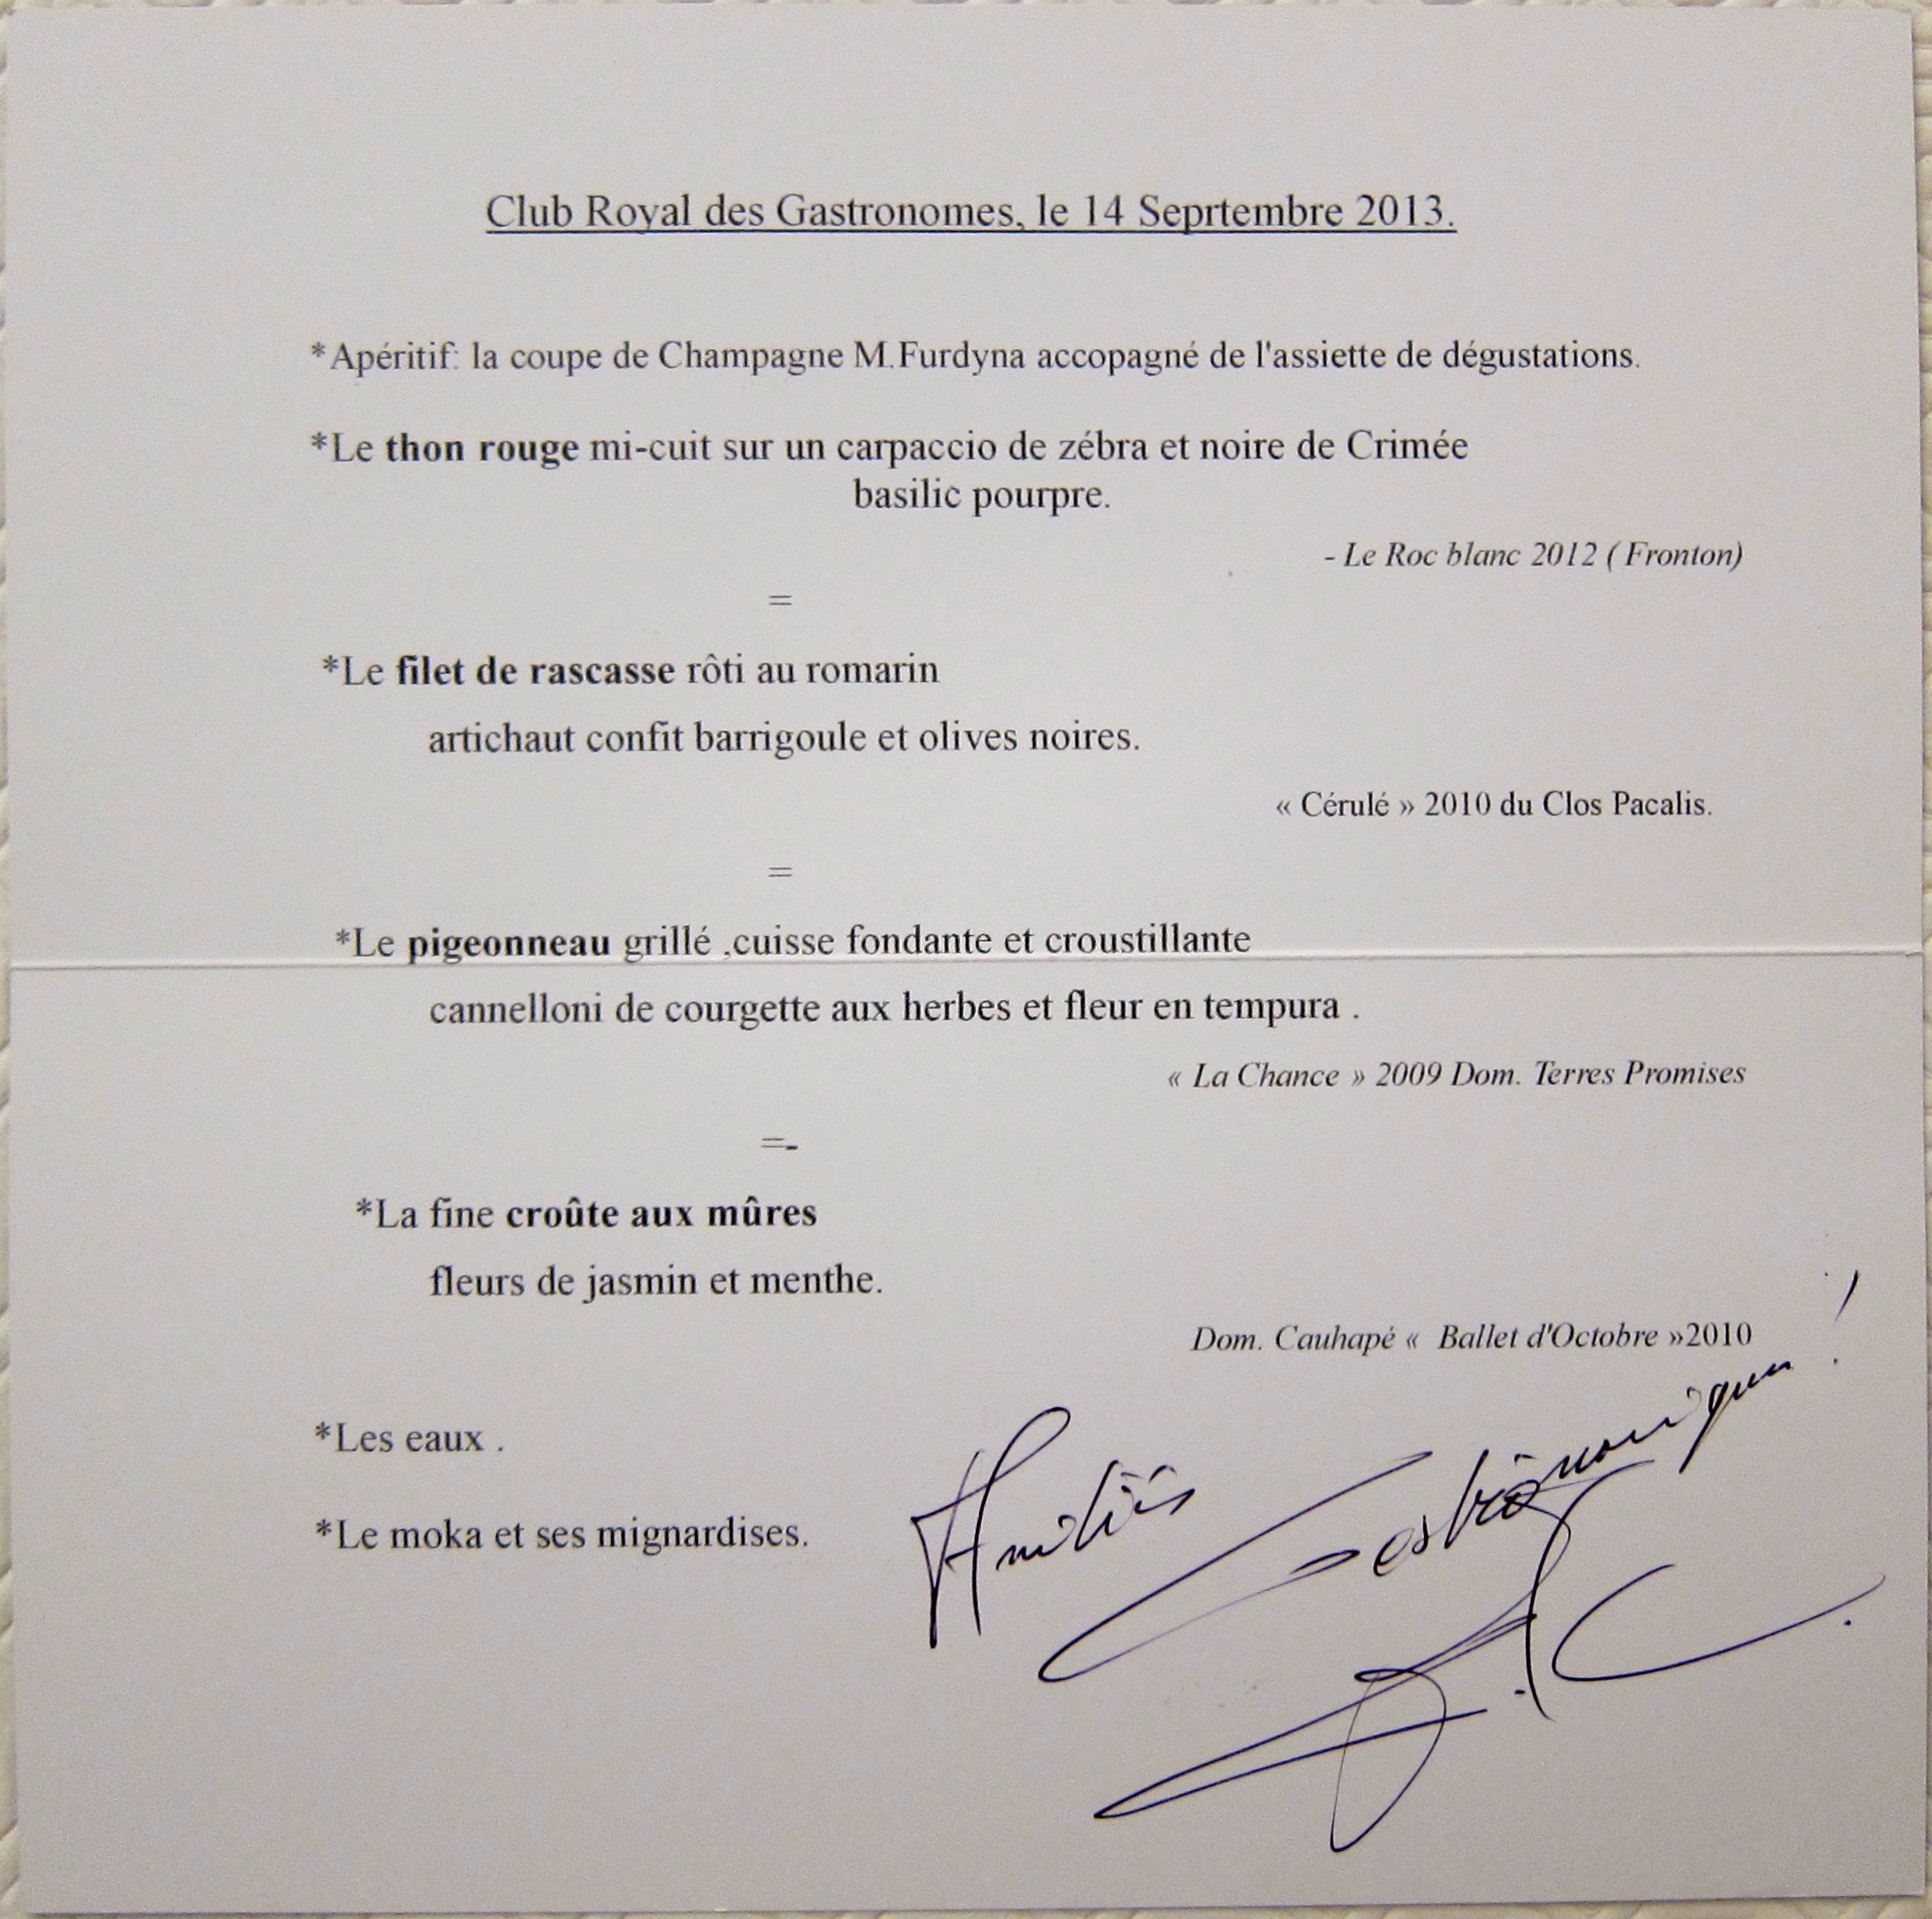 Club Royal des Gastronomes, le 14 Seprtembre 2013.
*Apéritif: la coupe de Champagne M.Furdyna accopagné de l'assiette de dégustations.
*Le thon rouge mi-cuit sur un carpaccio de zébra et noire de Crimée
basilic pourpre.
- Le Roc blanc 2012 ( Fronton)
=
*Le filet de rascasse rôti au romarin
artichaut confit barrigoule et olives noires.
« Cérulé » 2010 du Clos Pacalis.
=
*Le pigeonneau grillé ,cuisse fondante et croustillante
cannelloni de courgette aux herbes et fleur en tempura .
« La Chance » 2009 Dom. Terres Promises
=-
*La fine croûte aux mûres
fleurs de jasmin et menthe.
Dom. Cauhapé « Ballet d'Octobre »2010
*Les eaux .
*Le moka et ses mignardises.
Amitiés Gastronomiques !